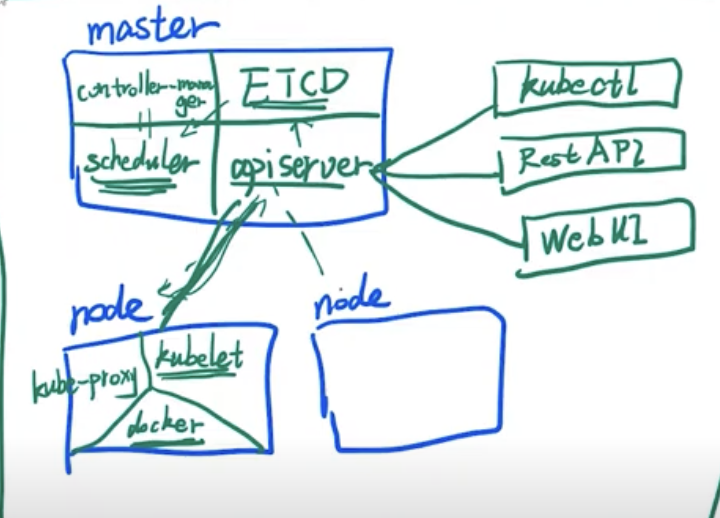 master
controller-mana
ger
ETCD
scheduler
apiserver
kubectl
Rest API
Web UI
node
kube-proxy
kubelet
docker
node